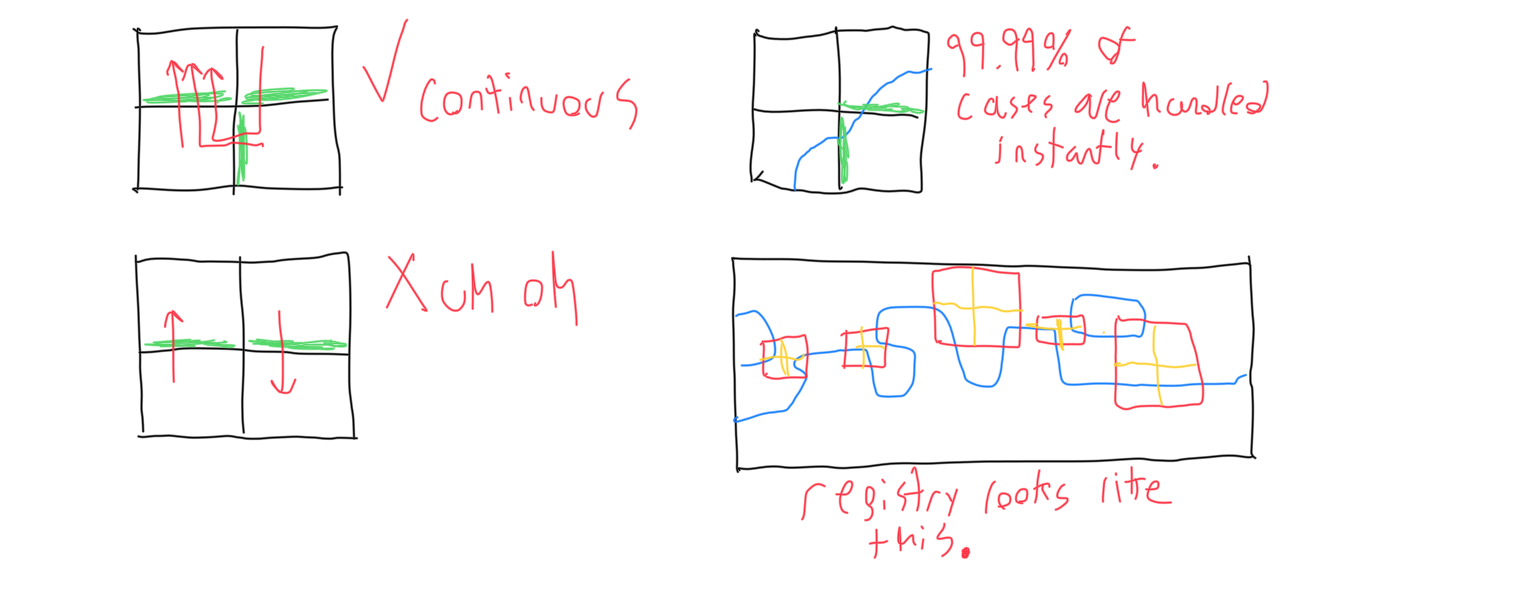 ✓ continuous
99.99% of
cases are handled
instantly.
X uh oh
registry looks like
this.